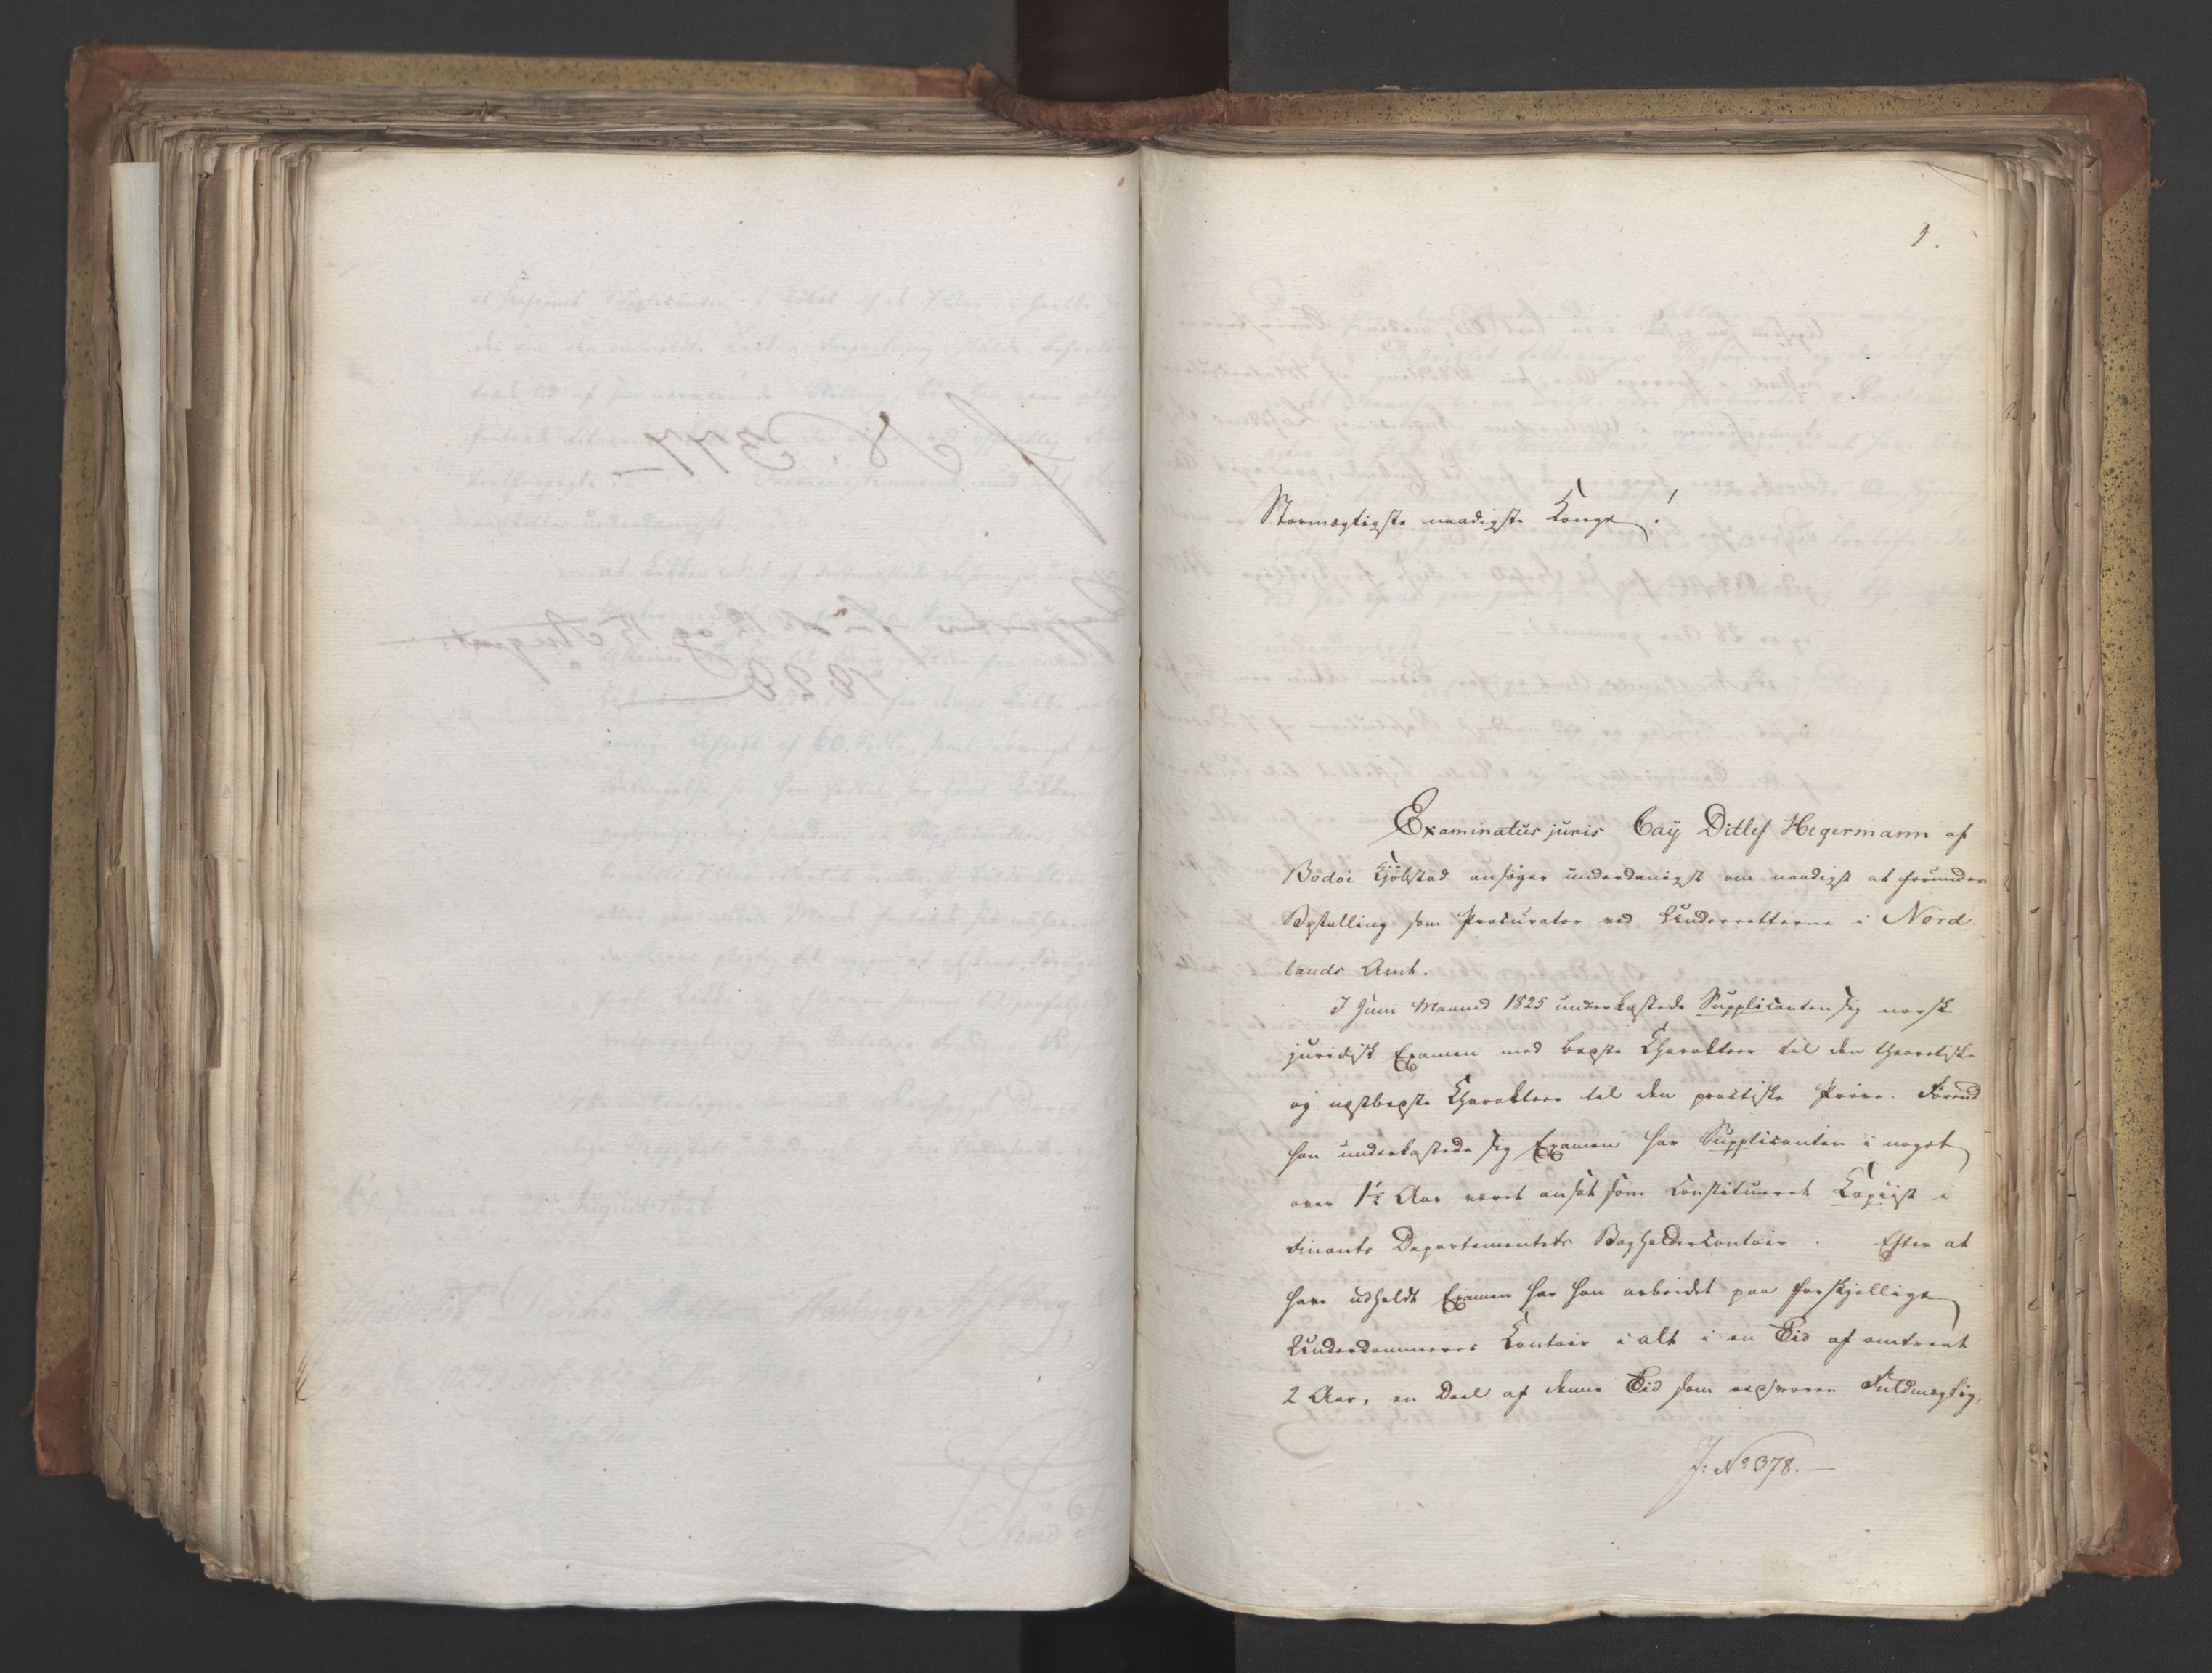 1.
Stormægtigste naadigste Konge!
Examinatus juris Caÿ Ditlef Hegermann af
Bodøe Kjøbstad ansøger underdanigst om naadigst at forundes
Bestalling som Procurator ved Underretterne i Nord-
lands Amt.
I Juni Maaned 1825 underkastede Supplicanten sig norsk
juridisk Examen med bedste Charakteer til den theoretiske
og næstbedste Charakteer til den practiske Prøve. Førend
han underkastede sig Examen har Supplicanten i noget
over 1½ Aar været ansat som constitueret Copiist i
Finants Departementets Bogholdercontoir. Efter at
have udholdt Examen har han arbeidet paa forskjellige
Underdommeres Contoir i alt i en Tid af omtrent
2 Aar, en Deel af denne Tid som eedsvoren Fuldmægtig,
J: No 378.—